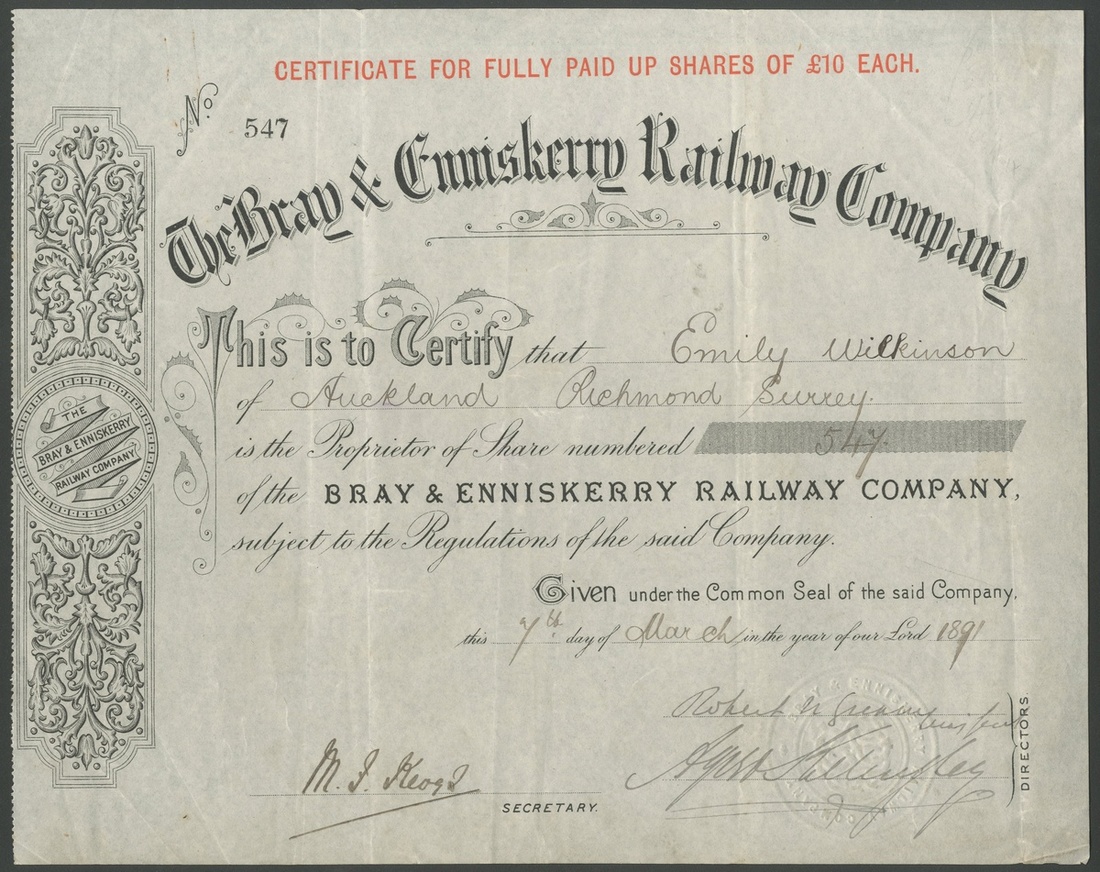 CERTIFICATE FOR FULLY PAID UP SHARES OF £10 EACH.
No. 547
The Bray & Enniskerry Railway Company
This is to Certify that Emily Wilkinson
of Auckland Richmond Surrey.
is the Proprietor of Share numbered 547.
of the BRAY & ENNISKERRY RAILWAY COMPANY,
subject to the Regulations of the said Company.
Given under the Common Seal of the said Company,
this 7th day of March in the year of our Lord 1891
THE
BRAY & ENNISKERRY
RAILWAY COMPANY
Robert
DIRECTORS.
M. J. Keogh
SECRETARY.